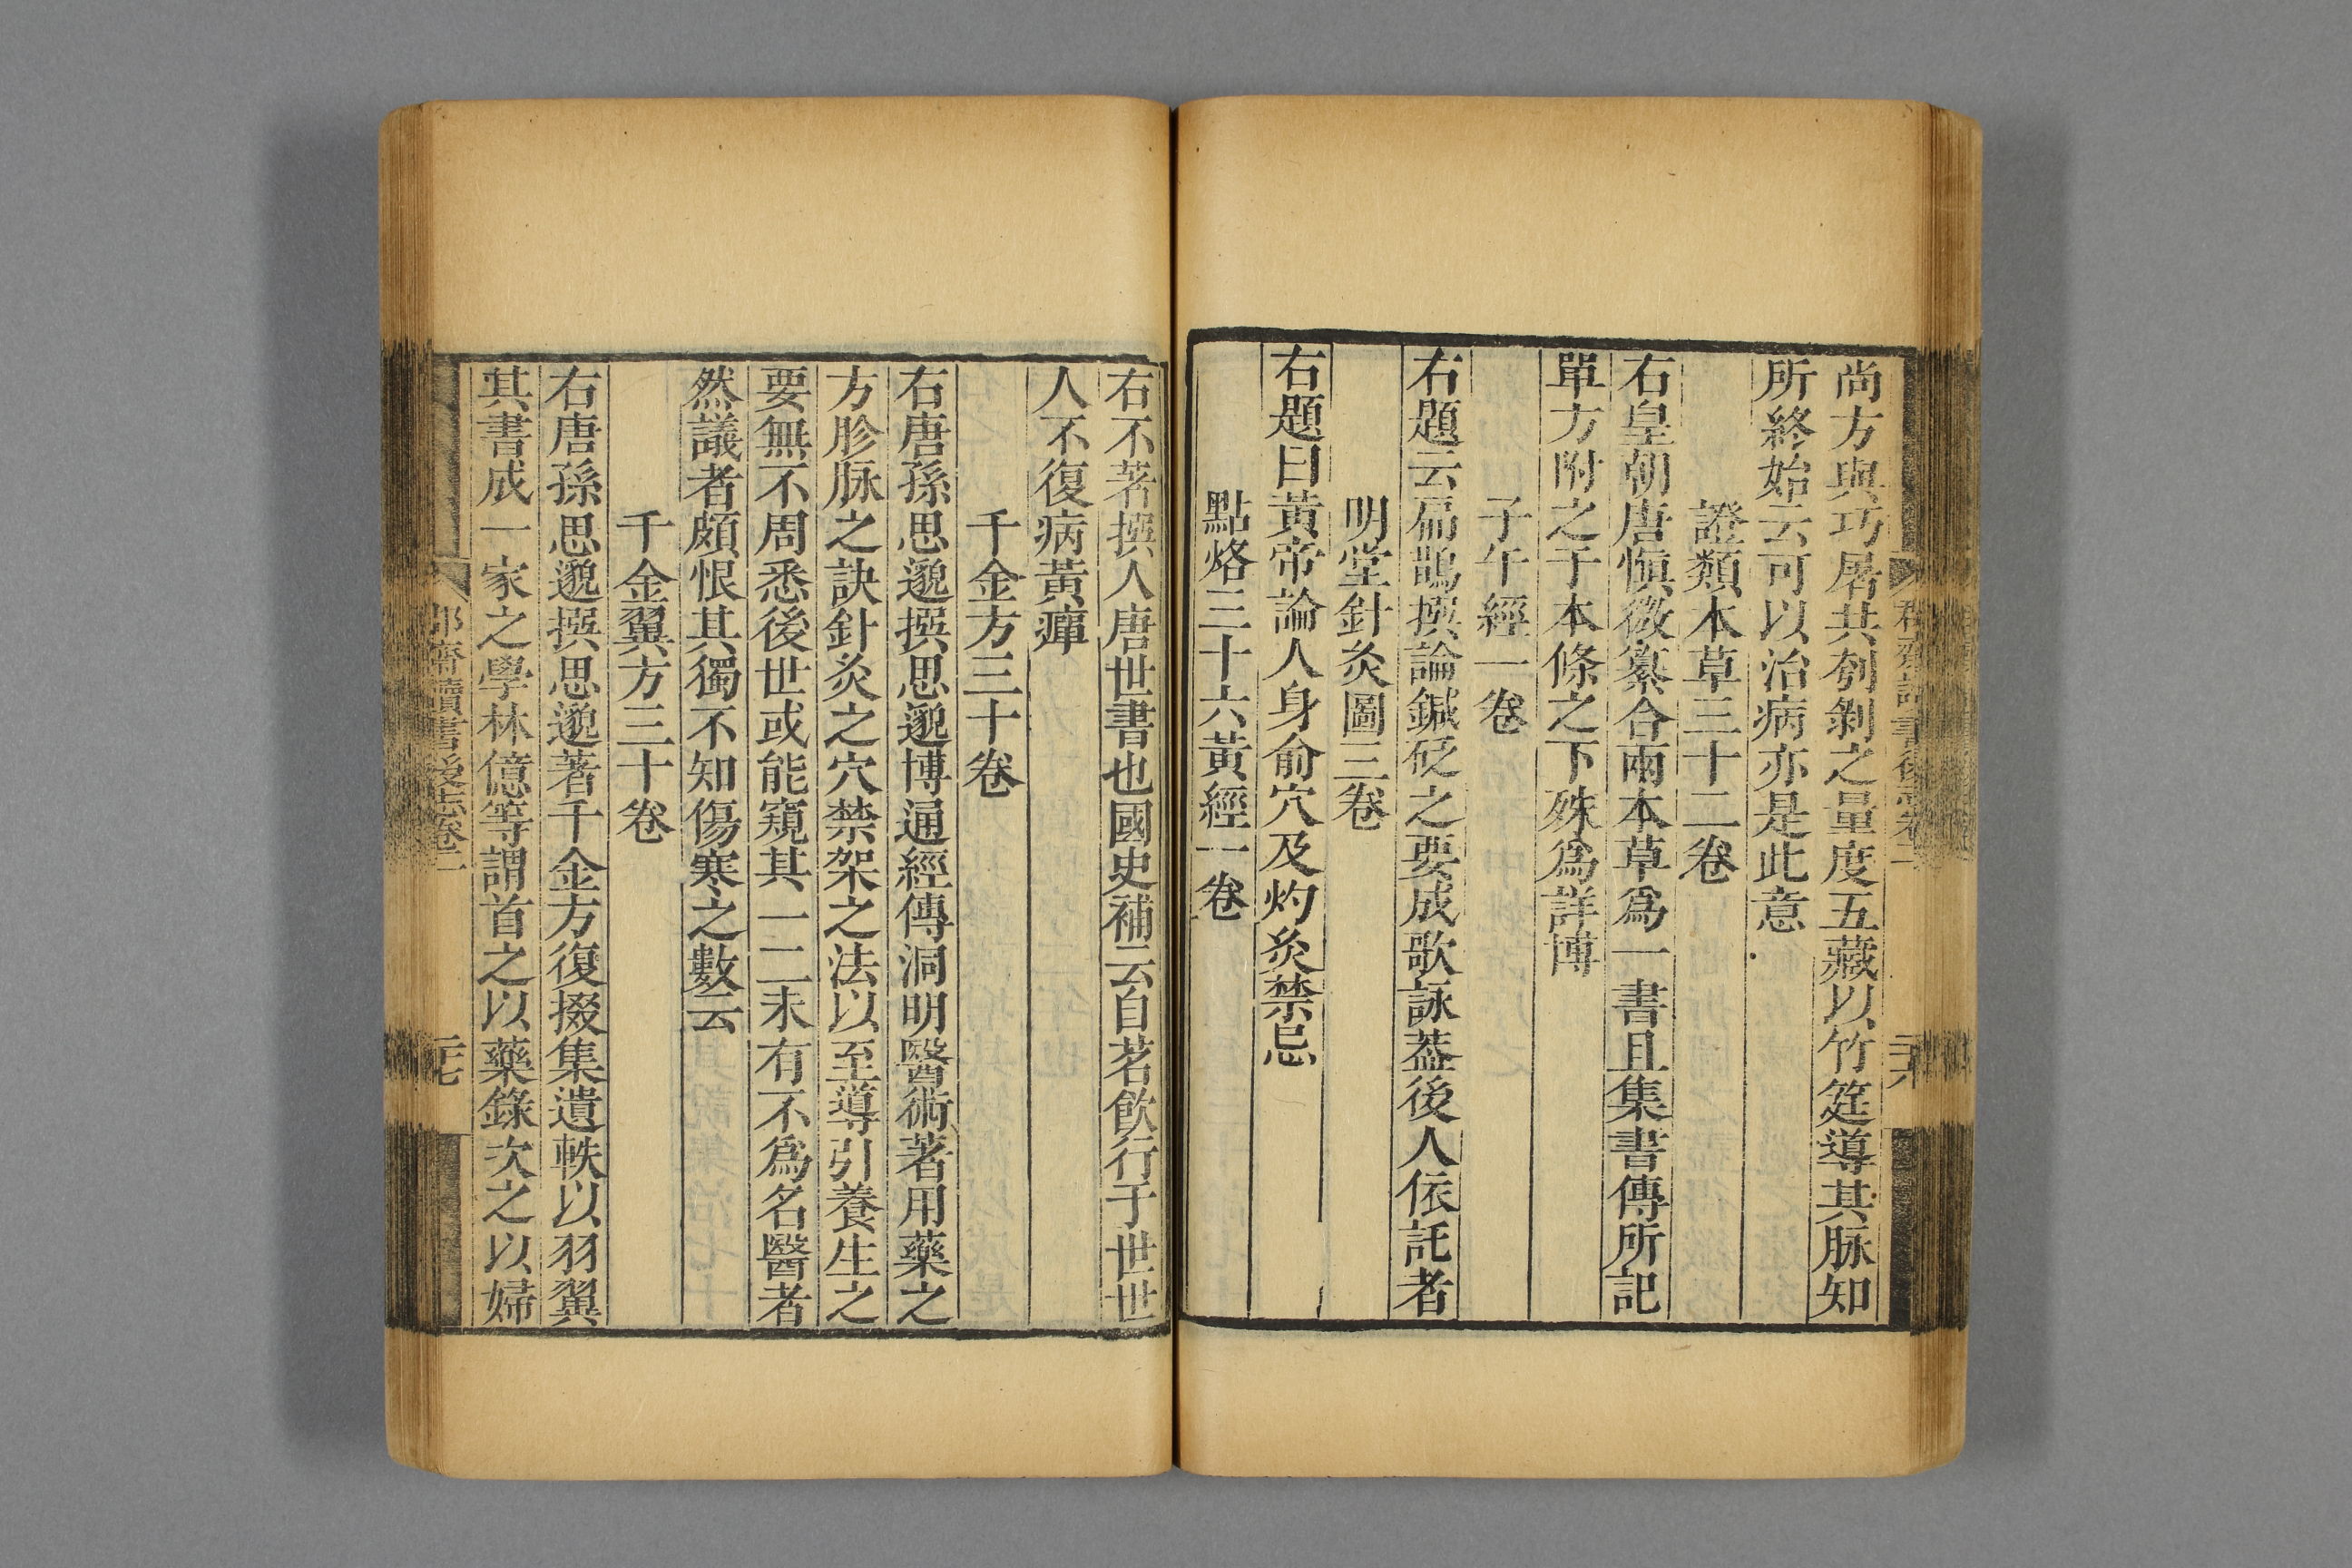 尚方與巧屠共刳剝之量度五藏以竹筳導其脉知
所終始云可以治病亦是此意
證類本草三十二卷
右皇朝唐愼微纂合兩本草爲一書且集書傳所記
單方附之于本條之下殊爲詳博
子午經一卷
右題云扁鵲撰論鍼砭之要成歌詠葢後人依託者
明堂針灸圖三卷
右題曰黃帝論人身俞穴及灼灸禁忌
點烙三十六黃經一卷
右不著撰人唐世書也國史補云自茗飲行于世世
人不復病黃癉
千金方三十卷
右唐孫思邈撰思邈博通經傳洞明醫術著用藥之
方胗脉之訣針灸之穴禁架之法以至導引養生之
要無不周悉後世或能窺其一二未有不爲名醫者
然議者頗恨其獨不知傷寒之數云
千金翼方三十卷
右唐孫思邈撰思邈著千金方復掇集遺軼以羽翼
其書成一家之學林億等謂首之以藥錄次之以婦
郡齋讀書後志卷二
二十七